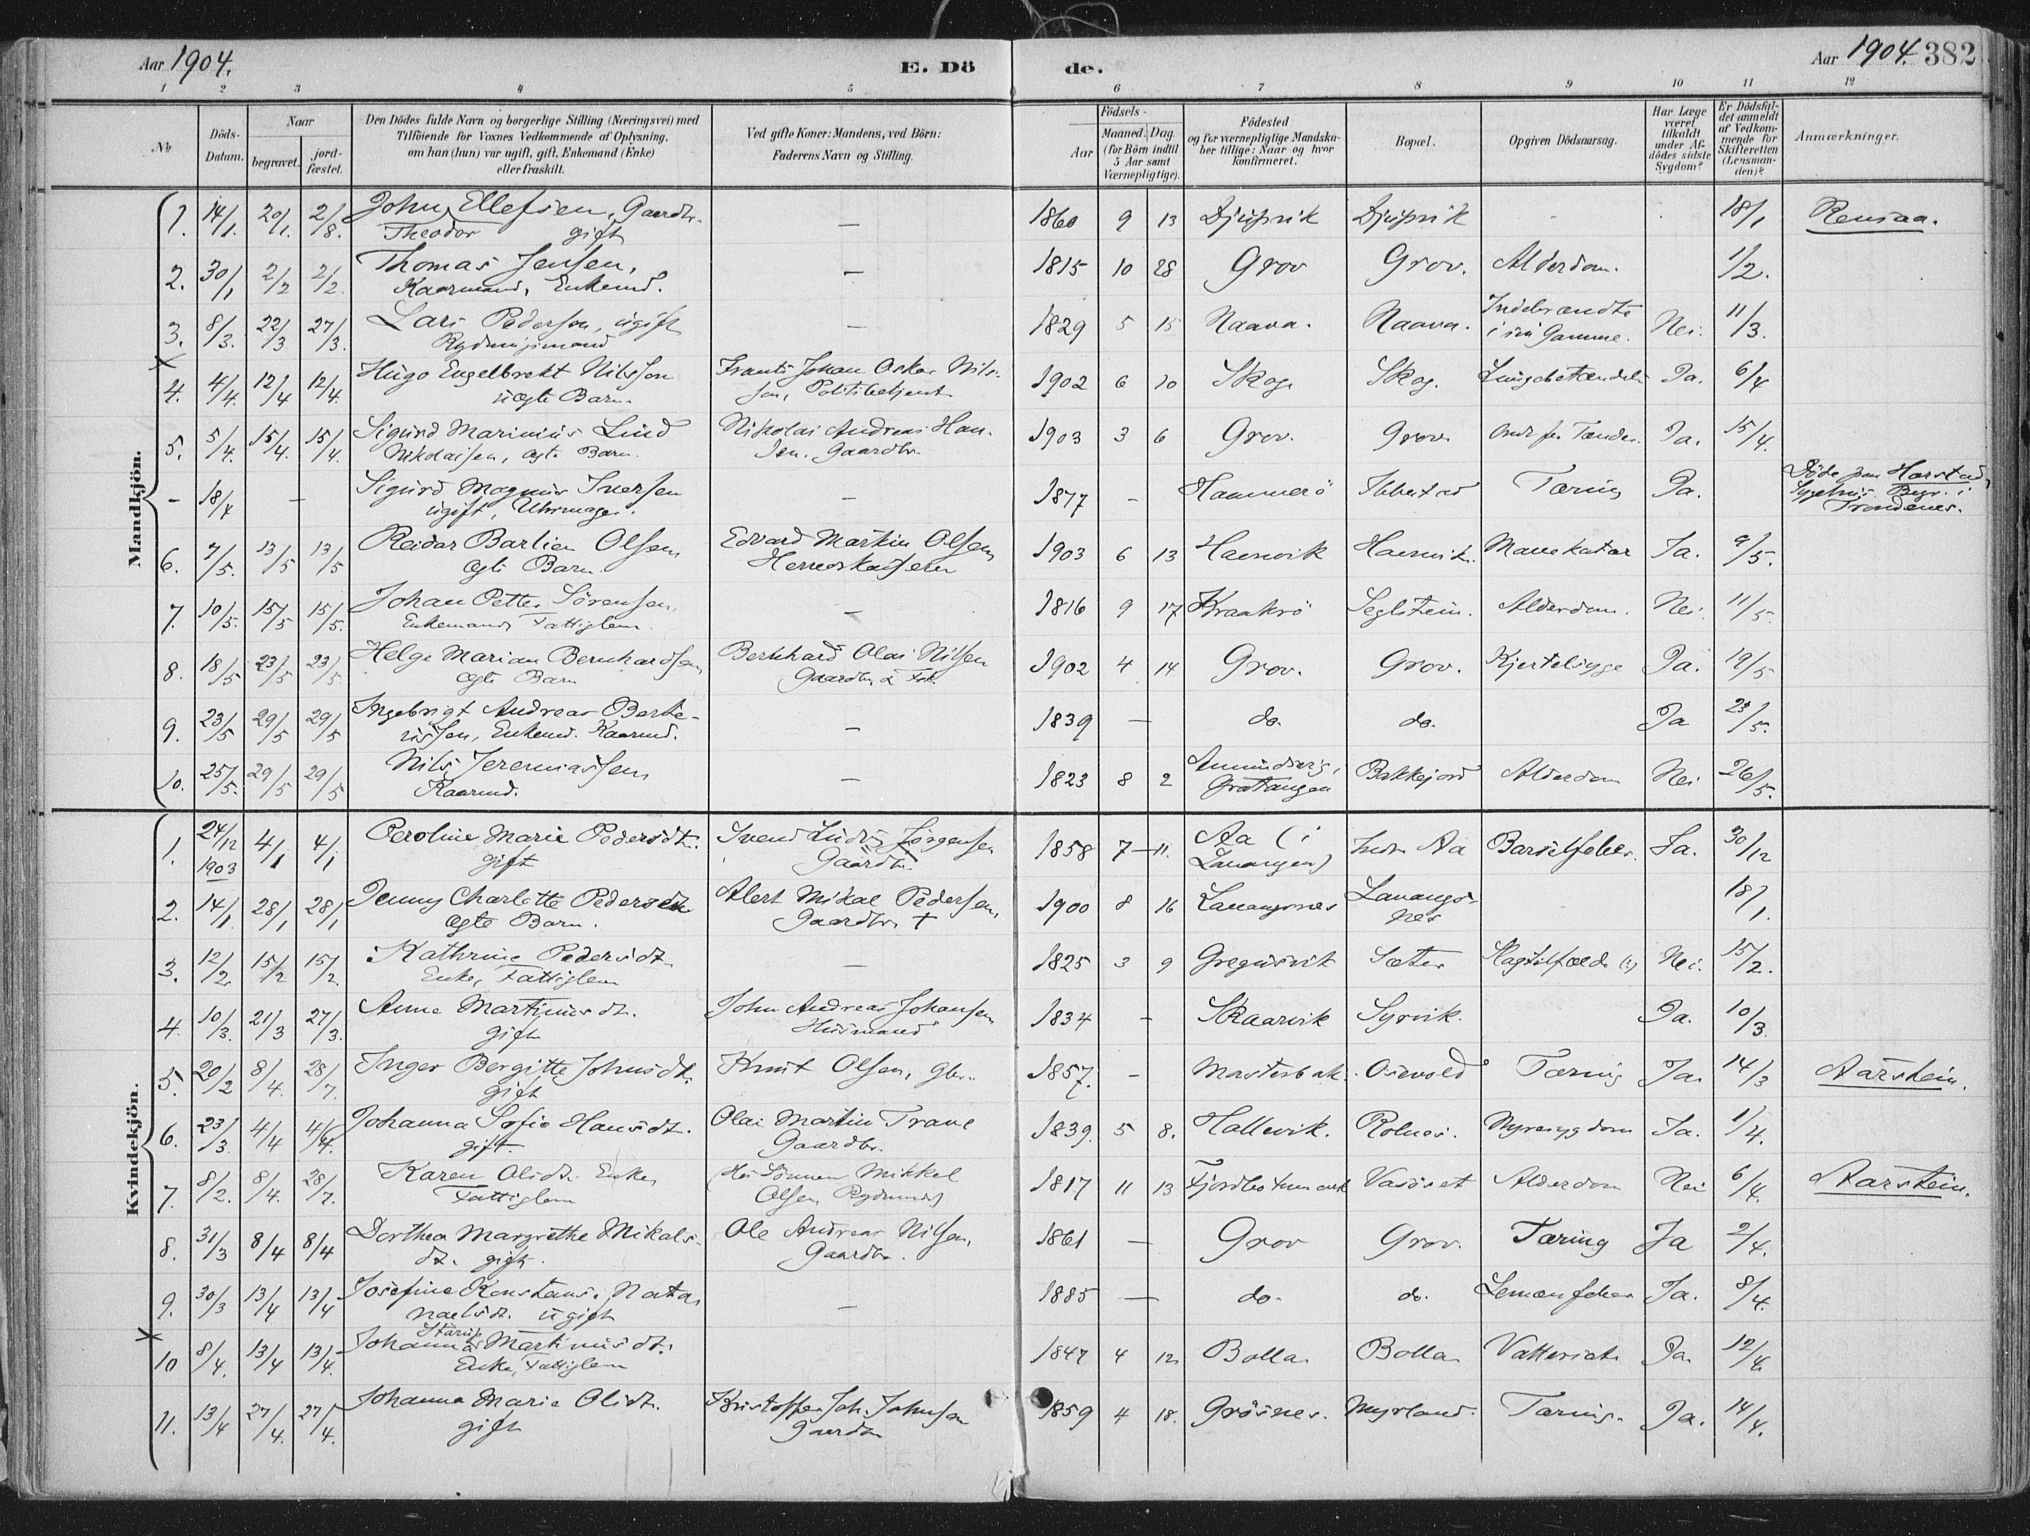 Aar 1904.
E. Dö
de.
Aar 1904.
382
1 2 3 4 5 6 7 8 9 10 11 12
No
Döds-
Datum.
Naar
begravet.
jord-
fæstet.
Den Dödes fulde Navn og borgerlige Stilling (Næringsvei) med
Tilföiende for Voxnes Vedkommende af Oplysning,
om han (hun) var ugift, gift, Enkemand (Enke)
eller fraskilt.
Ved gifte Koner: Mandens, ved Börn:
Faderens Navn og Stilling.
Födsels-
Aar
Maaned. Dag.
(for Börn indtil
5 Aar samt
Værnepligtige).
Födested
og for værnepligtige Mandska-
ber tillige: Naar og hvor
konfirmeret.
Bopæl.
Opgiven Dödsaarsag.
Har Læge
været
tilkaldt
under Af-
dödes sidste
Sygdom?
Er Dödsfal-
det anmeldt
af Vedkom-
mende for
Skifteretten
(Lensman-
den)?
Anmærkninger.
Mandkjön.
1. 14/1. 20/1. 2/8. John Ellefsen, Gaardbr. — 1860 9 13 Djupvik Djupvik - - 18/1 Rensaa.
Theodor gift
2. 30/1 2/2 2/2. Thomas Jensen, — 1815 10 28 Grov Grov. Alderdom. 1/2.
Kaarmand, Enkemd.
3. 8/3. 22/3 27/3. Lars Pederson, ugift — 1829 5 15 Naava. Naava. Indebrændte Nei. 11/3.
Rydningsmand i sin Gamme.
4. 4/4. 12/4 12/4. Hugo Engelbrekt Nilsson Frants Johan Oskar Nils- 1902 6 10 Skog Skog. Lungebetændelse Ja. 6/4
uægte Barn. son, Politibetjent
5. 5/4. 15/4. 15/4. Sigurd Marinius Lind Nikolai Andreas Han- 1903 3 6 Grov. Grov. Ondt for Tænder. Ja. 15/4.
Nikolaisen, ægte Barn. sen. Gaardbr.
- 18/4 - Sigurd Magnus Iversen — 1877 - Hammerö Ibbestad Tæring Ja. Döde paa Harstad
ugift, Uhrmager. Sygehus. Begr. i
Trondenes.
6. 7/5. 13/5 13/5 Reidar Barlien Olsen Edvard Martin Olsen 1903 6 13 Havnvik Havnvik. Mavekatar Ja. 9/5.
ægte Barn
7. 10/5. 15/5 15/5. Johan Petter Sörensen, — 1816 9 17 Kraakrö Seglstein. Alderdom. Nei. 11/5.
Enkemand, Fattiglem.
8. 18/5 23/5 23/5 Helge Marian Bernhardsen, Bernhard Olai Nilsen 1902 4 14 Grov. Grov. Kjertelsyge Ja. 19/5
ægte Barn Gaardbr. à Fisk.
9. 23/5 29/5 29/5 Ingebrigt Andreas Berte- — 1839 — do. do. Ja 23/5.
ussen, Enkemd. Kaarmd.
10. 25/5. 29/5 29/5 Nils Jeremiassen — 1823 8 2 Bakkejord Alderdom Nei 26/5.
Kaarmd. Gratangen
Kvindekjön.
1. 24/12 4/1 4/1 Peroline Marie Pedersdt. Svend Ludv. Jørgensen 1858 7 — 11. Aa (i Indre Aa Barselfeber. Ja. 30/12
1903 gift Gaardbr. Lavangen)
2. 14/1 28/1 28/1 Jenny Charlotte Pedersdt. Alert Mikal Pedersen, 1900 8 16 Lavangsnes Lavangs- 18/1.
ægte Barn. Gaardbr. + nes
3. 12/2. 15/2 15/2. Kathrine Pedersdt. — 1825 3 9 Gregusvik Sæter Slagtilfælde (?) Nei. 15/2.
Enke, Fattiglem
4. 10/3. 21/3 27/3. Anne Martinusdt. John Andreas Johansen 1834 - Skaarvik Syrvik. Ja. 10/3.
gift Husmand
5. 20/2 8/4. 28/7. Inger Bergitte Johnsdt. Knut Olsen, gbr. 1857. - Masterbak. Osevold Tæring Ja. 14/3 Aarstein.
gift
6. 23/3 4/4 4/4. Johanna Sofie Hansdt. Olai Martin Trane 1839. 5 8. Hallevik. Rolnes. Nyresygdom Ja. 1/4.
gift. Gaardbr.
7. 8/2. 8/4. 28/7. Karen Olsdt. Enke, (Hos Sønnen Mikkel 1817 11 13 Fjordbotnmark Vasöset Alderdom Nei 6/4. Aarstein.
Fattiglem Olsen, Rydnmd.)
8. 31/3 8/4 8/4 Dorthea Margrethe Mikals- Ole Andreas Nilsen, 1861 — Grov Grov. Tæring Ja 2/4.
dt. gift. Gaardbr.
9. 30/3 13/4 13/4 Josefine Konstanse Nata- — 1885 — do. do. Ja. 8/4.
naelsdt. ugift
10 8/4. 13/4 13/4. Johanna Martinusdt. 1847 4 12 Bolla Bolla Vattersot Ja. 12/4
Enke, Fattiglem
11. 13/4 27/4. 27/4. Johanna Marie Olsdt. Kristoffer Joh. Johnsen 1859 4 18. Grösnes. Myrland. Tæring. Ja. 14/4.
gift Gaardbr.